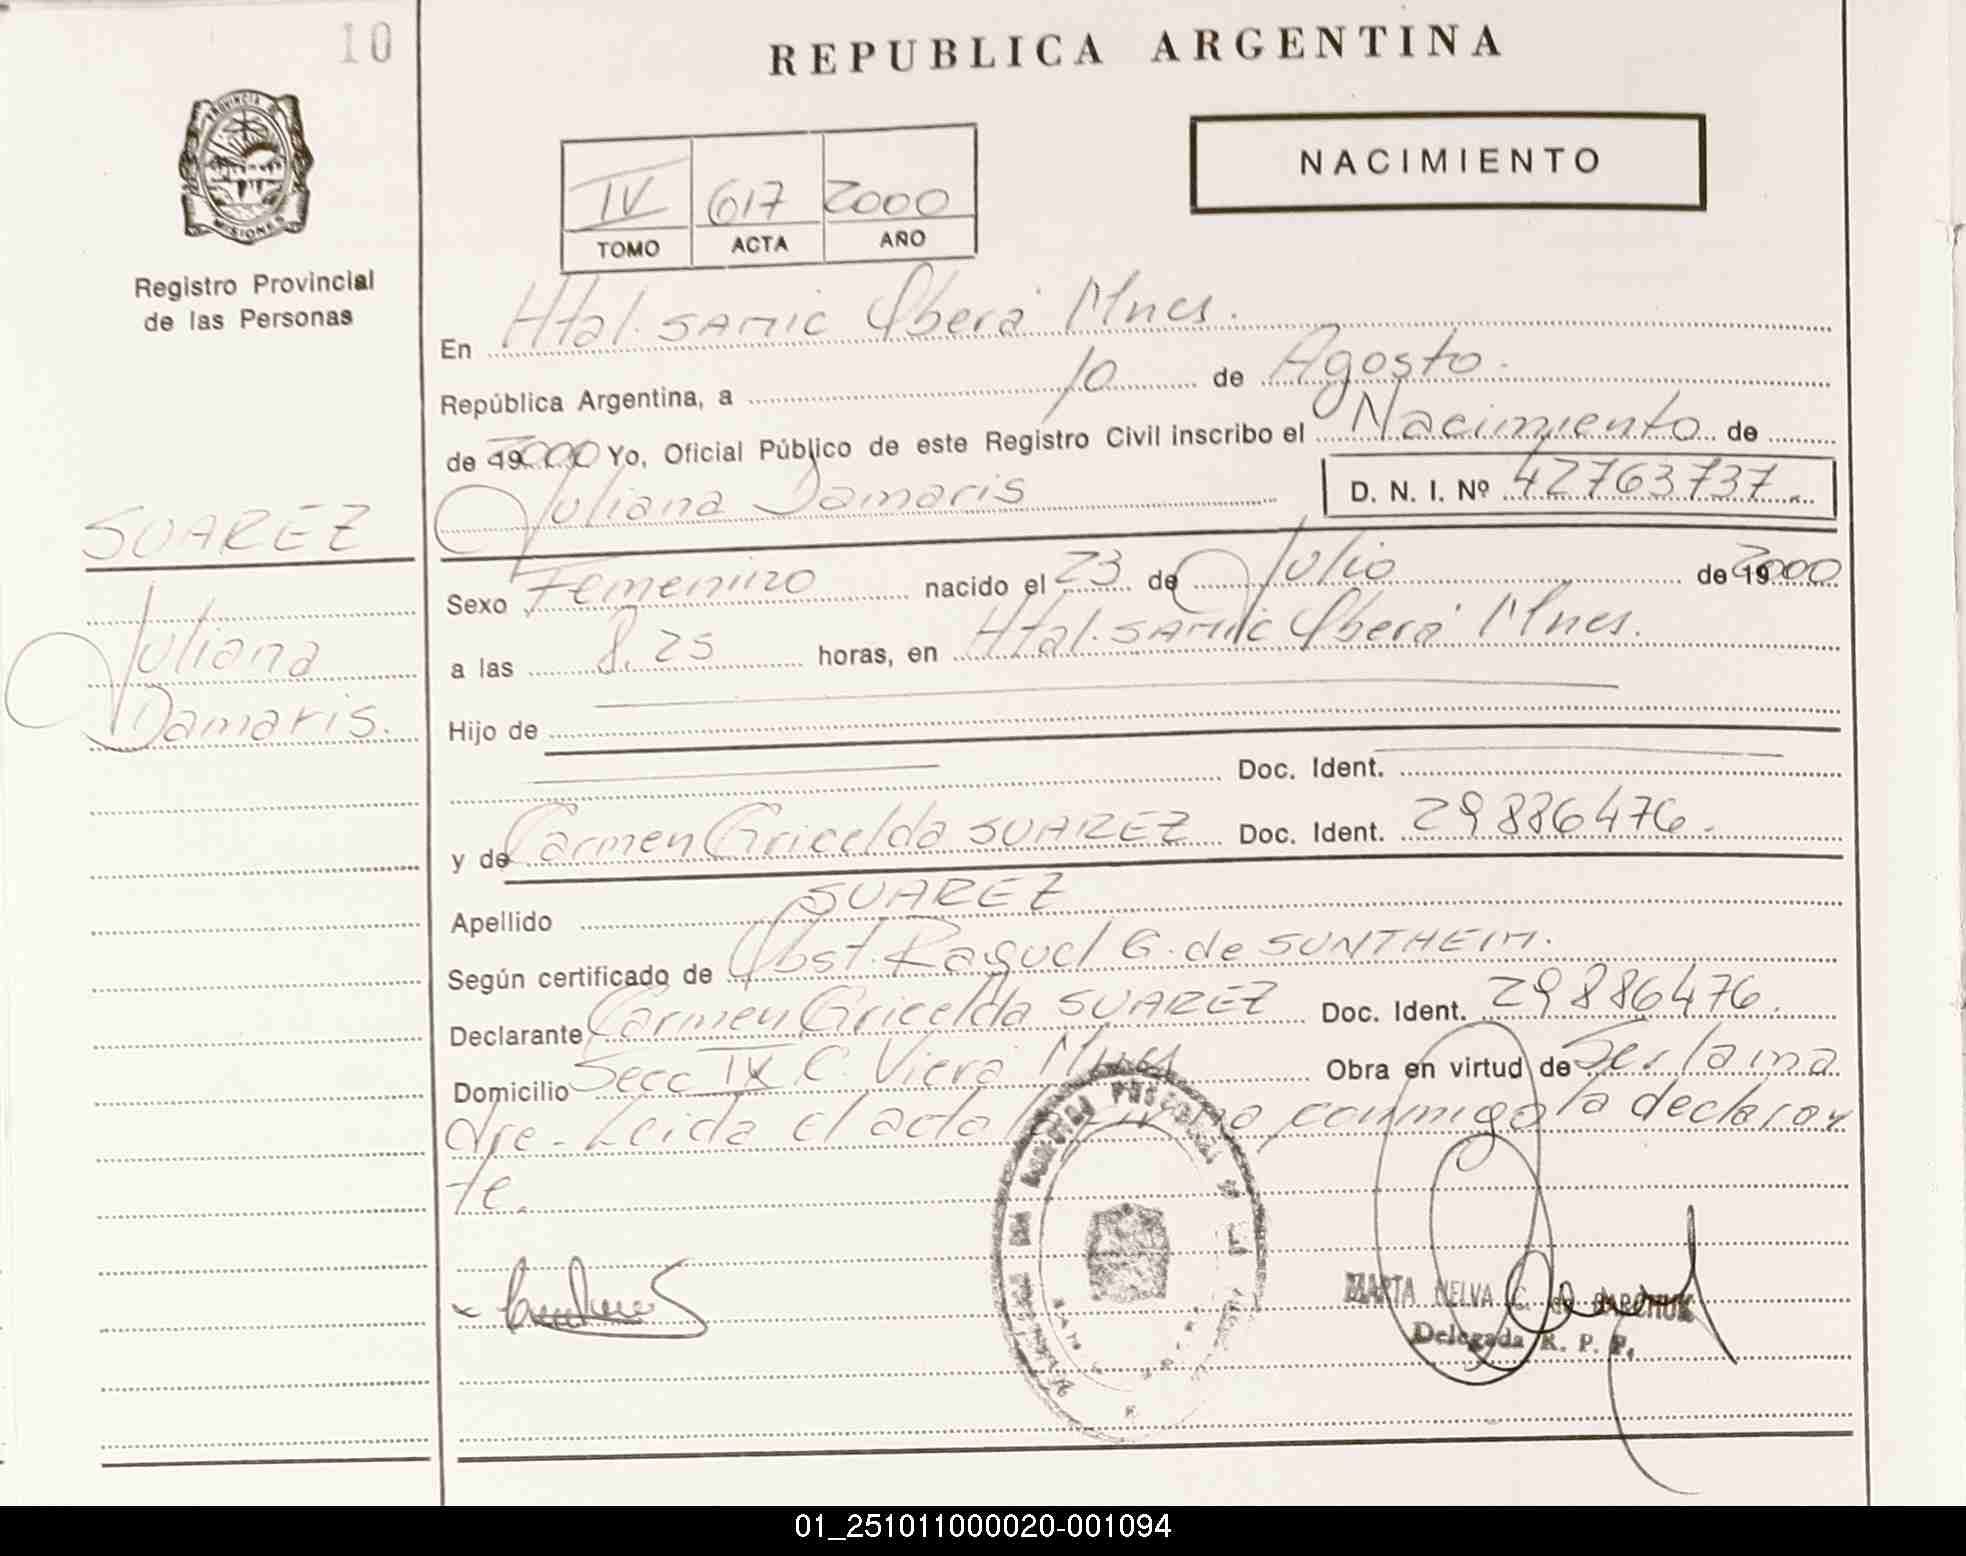 10
REPUBLICA ARGENTINA
PROVINCIA DE
MISIONES
Registro Provincial
de las Personas
NACIMIENTO
IV 617 2000
TOMO ACTA AÑO
En Htal. SAMIC Oberá Mnes.
República Argentina, a 10 de Agosto.
de 2000 Yo, Oficial Público de este Registro Civil inscribo el Nacimiento de
Juliana Damaris D. N. I. Nº 42763737
SUAREZ
Juliana
Damaris.
Sexo Femenino nacido el 23 de Julio de 2000
a las 8.25 horas, en Htal. SAMIC Oberá Mnes.
Hijo de
Doc. Ident.
y de Carmen Gricelda SUAREZ Doc. Ident. 29886476.
Apellido SUAREZ
Según certificado de Obst. Raquel G. de SUNTHEIM.
Declarante Carmen Gricelda SUAREZ Doc. Ident. 29886476.
Domicilio Secc IX C. Viera Mnes Obra en virtud de Ser la ma
dre - Leida el acta conmigo la declaran
te.
MARTA NELVA C. de
Delegada R. P. P.
01_251011000020-001094